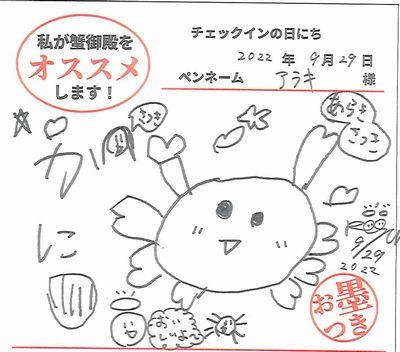 私が蟹御殿を
オススメ
します!
チェックインの日にち
2022 年 9月 29日
ペンネーム アラキ 様
さつき
あらき
さつき
かに
9/29
2022
おいしいよ
お墨
つき